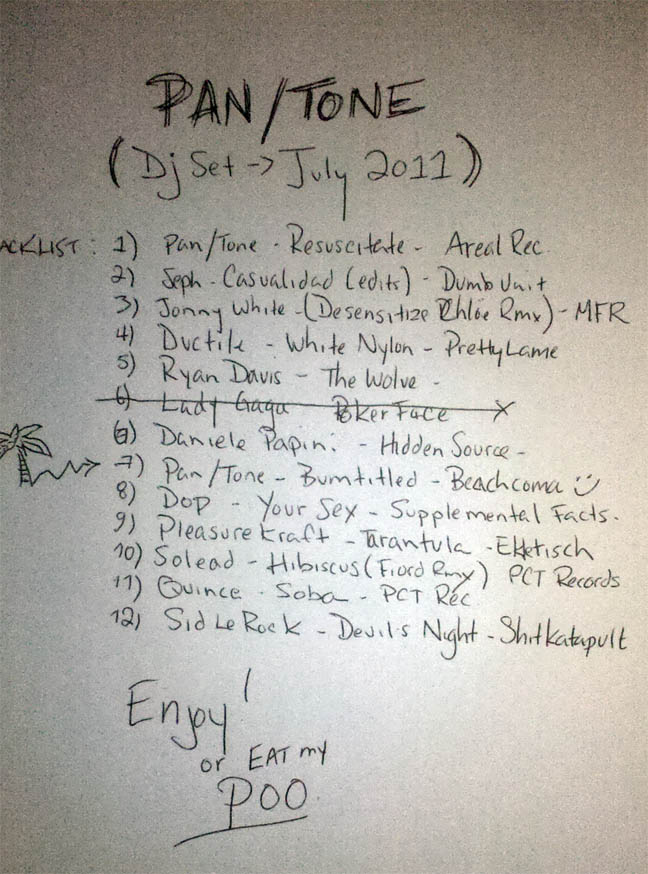 PAN/TONE
(Dj Set -> July 2011)
ACKLIST: 1) Pan/Tone - Resuscitate - Areal Rec.
2) Seph - Casualidad (edits) - Dumb Unit
3) Jonny White - (Desensitize Chlöe Rmx) - MFR
4) Ductile - White Nylon - PrettyLame
5) Ryan Davis - The Wolve -
6) Lady Gaga Poker Face X
6) Daniele Papini - Hidden Source -
7) Pan/Tone - Bumtitled - Beachcoma
8) Dop - Your Sex - Supplemental Facts.
9) Pleasurekraft - Tarantula - Ekletisch
10) Solead - Hibiscus (Fiord Rmx) PCT Records
11) Quince - Soba - PCT Rec
12) Sid Le Rock - Devil's Night - Shitkatapult
Enjoy!
or EAT my
POO